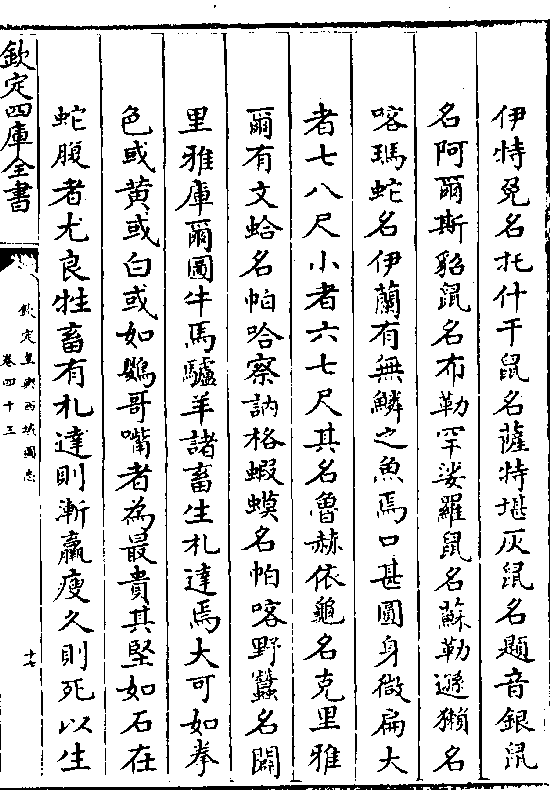 伊特兔名托什干鼠名薩特堪灰鼠名題音銀鼠
名阿爾斯貂鼠名布勒罕娑羅鼠名蘇勒遜獺名
喀瑪蛇名伊蘭有無鱗之魚焉口甚圓身微扁大
者七八尺小者六七尺其名魯赫依龜名克里雅
爾有文蛤名帕哈察訥格蝦蟆名帕喀野蠶名闢
里雅庫爾圖牛馬驢羊諸畜生札達焉大可如拳
色或黃或白或如鸚哥嘴者為最貴其堅如石在
蛇腹者尤良牲畜有札達則漸羸瘦久則死以生
欽定四庫全書
欽定皇輿西域圖志
卷四十三
十七